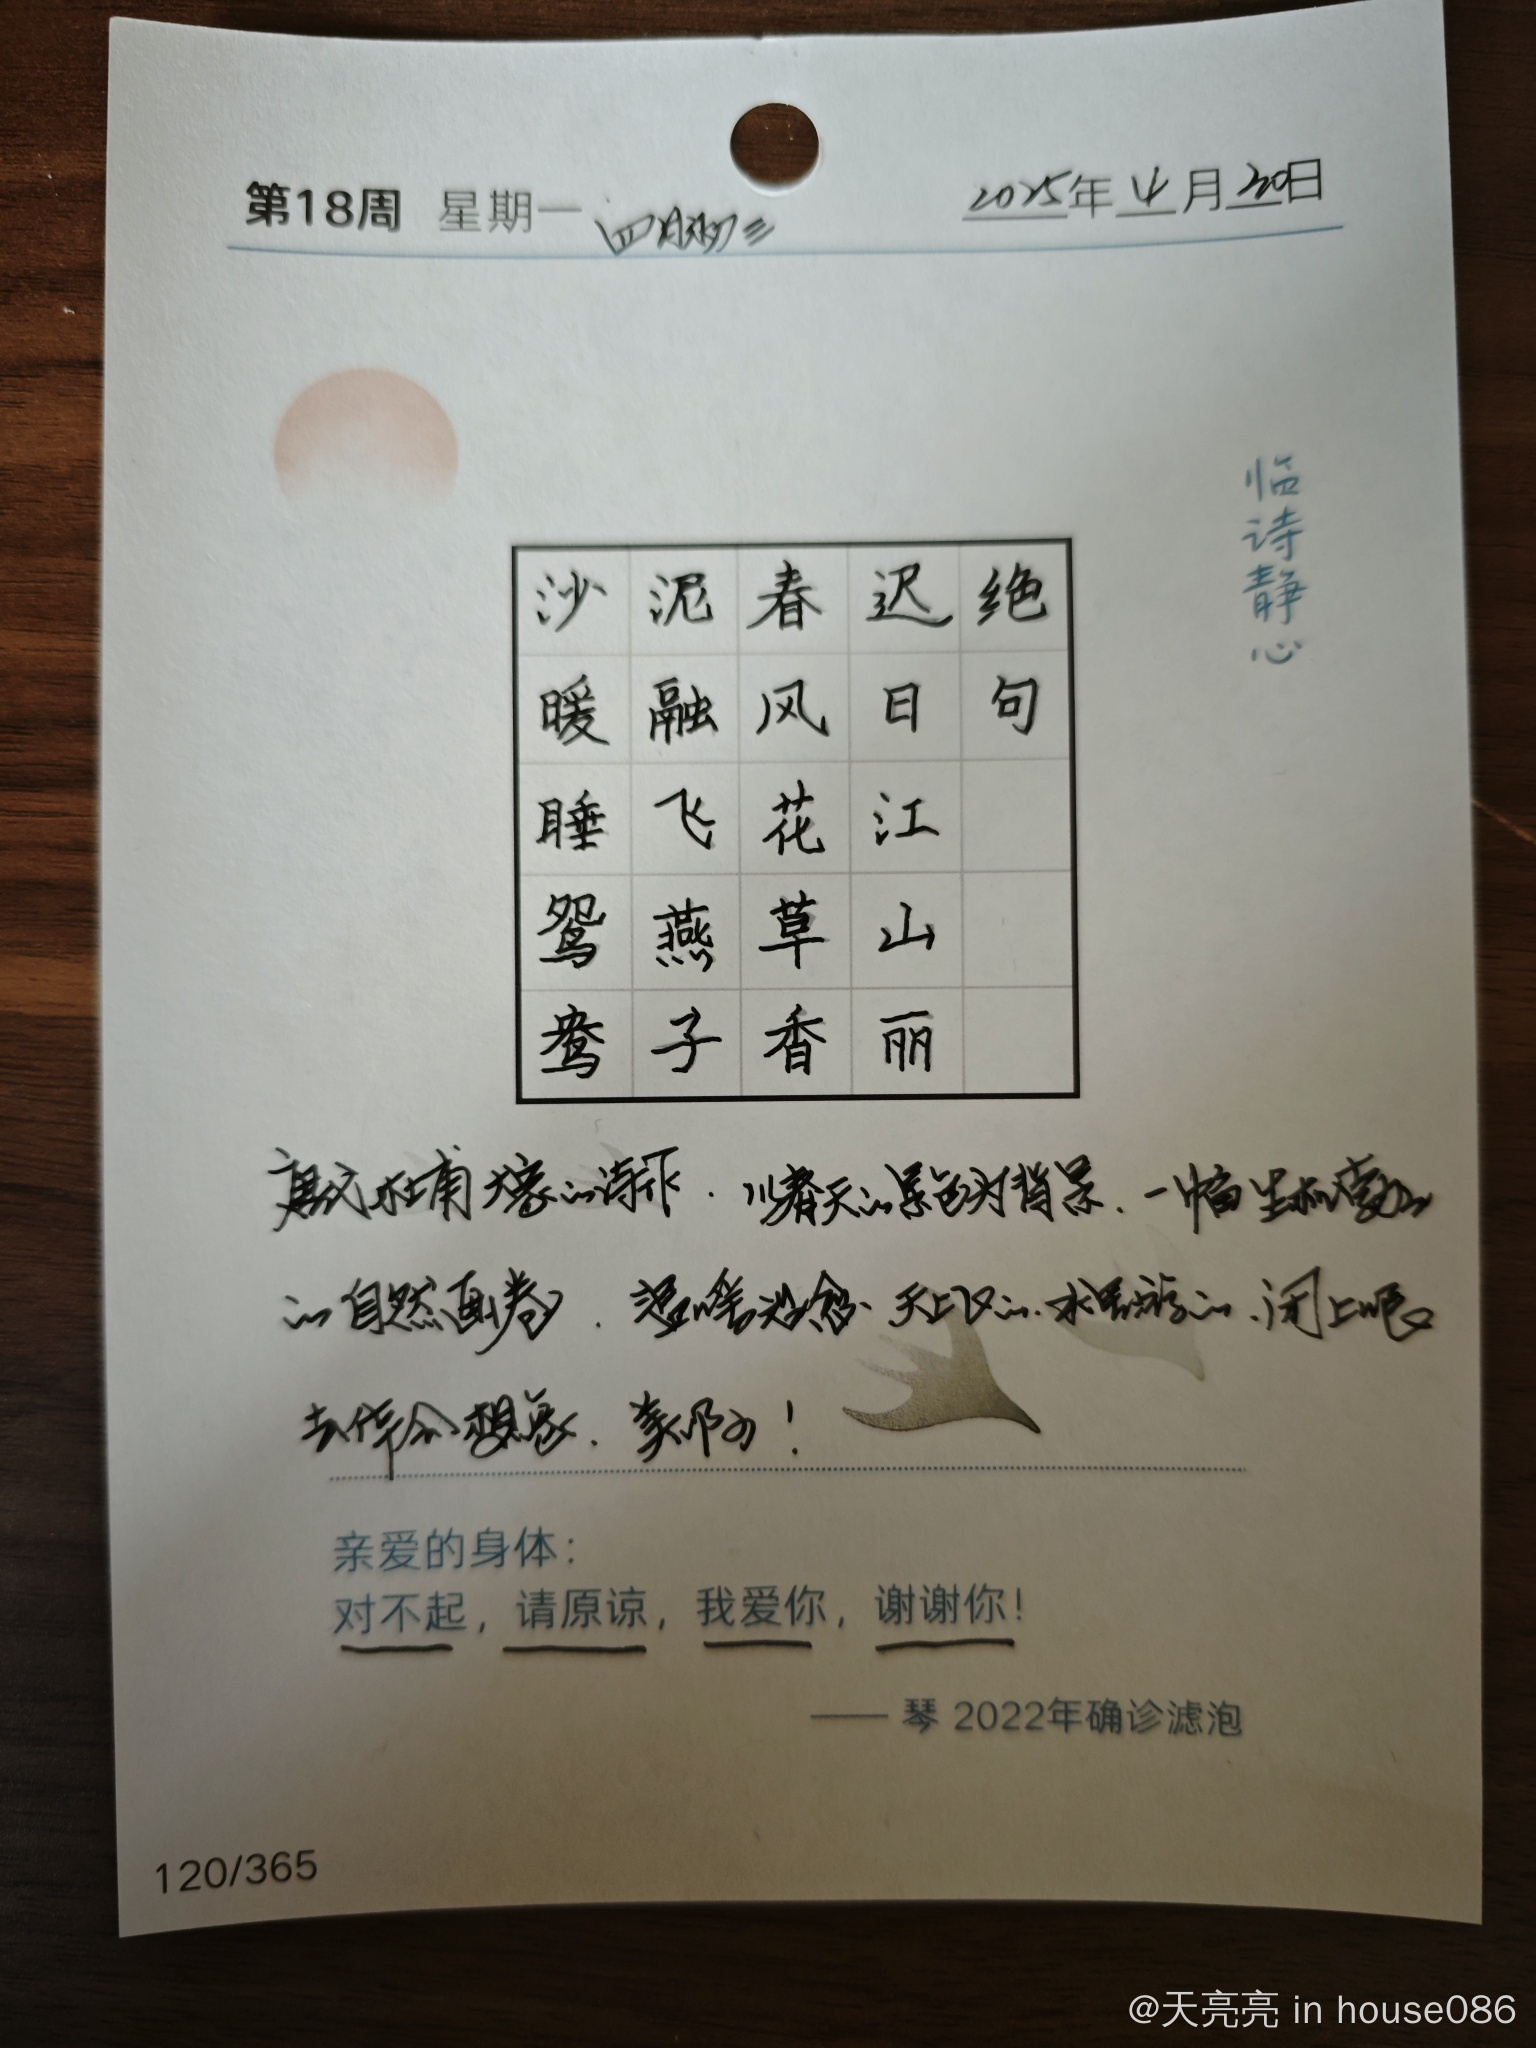 第18周 星期一 四月初三
2025年4月30日
临诗静心
绝句
迟日江山丽
春风花草香
泥融飞燕子
沙暖睡鸳鸯
杜甫大家的诗作.以春天的景色为背景.一幅生机
的自然画卷.天上飞的.水里游的.闭上眼
去体会想象.美
亲爱的身体：
对不起，请原谅，我爱你，谢谢你！
—— 琴 2022年确诊滤泡
120/365
@天亮亮 in house086